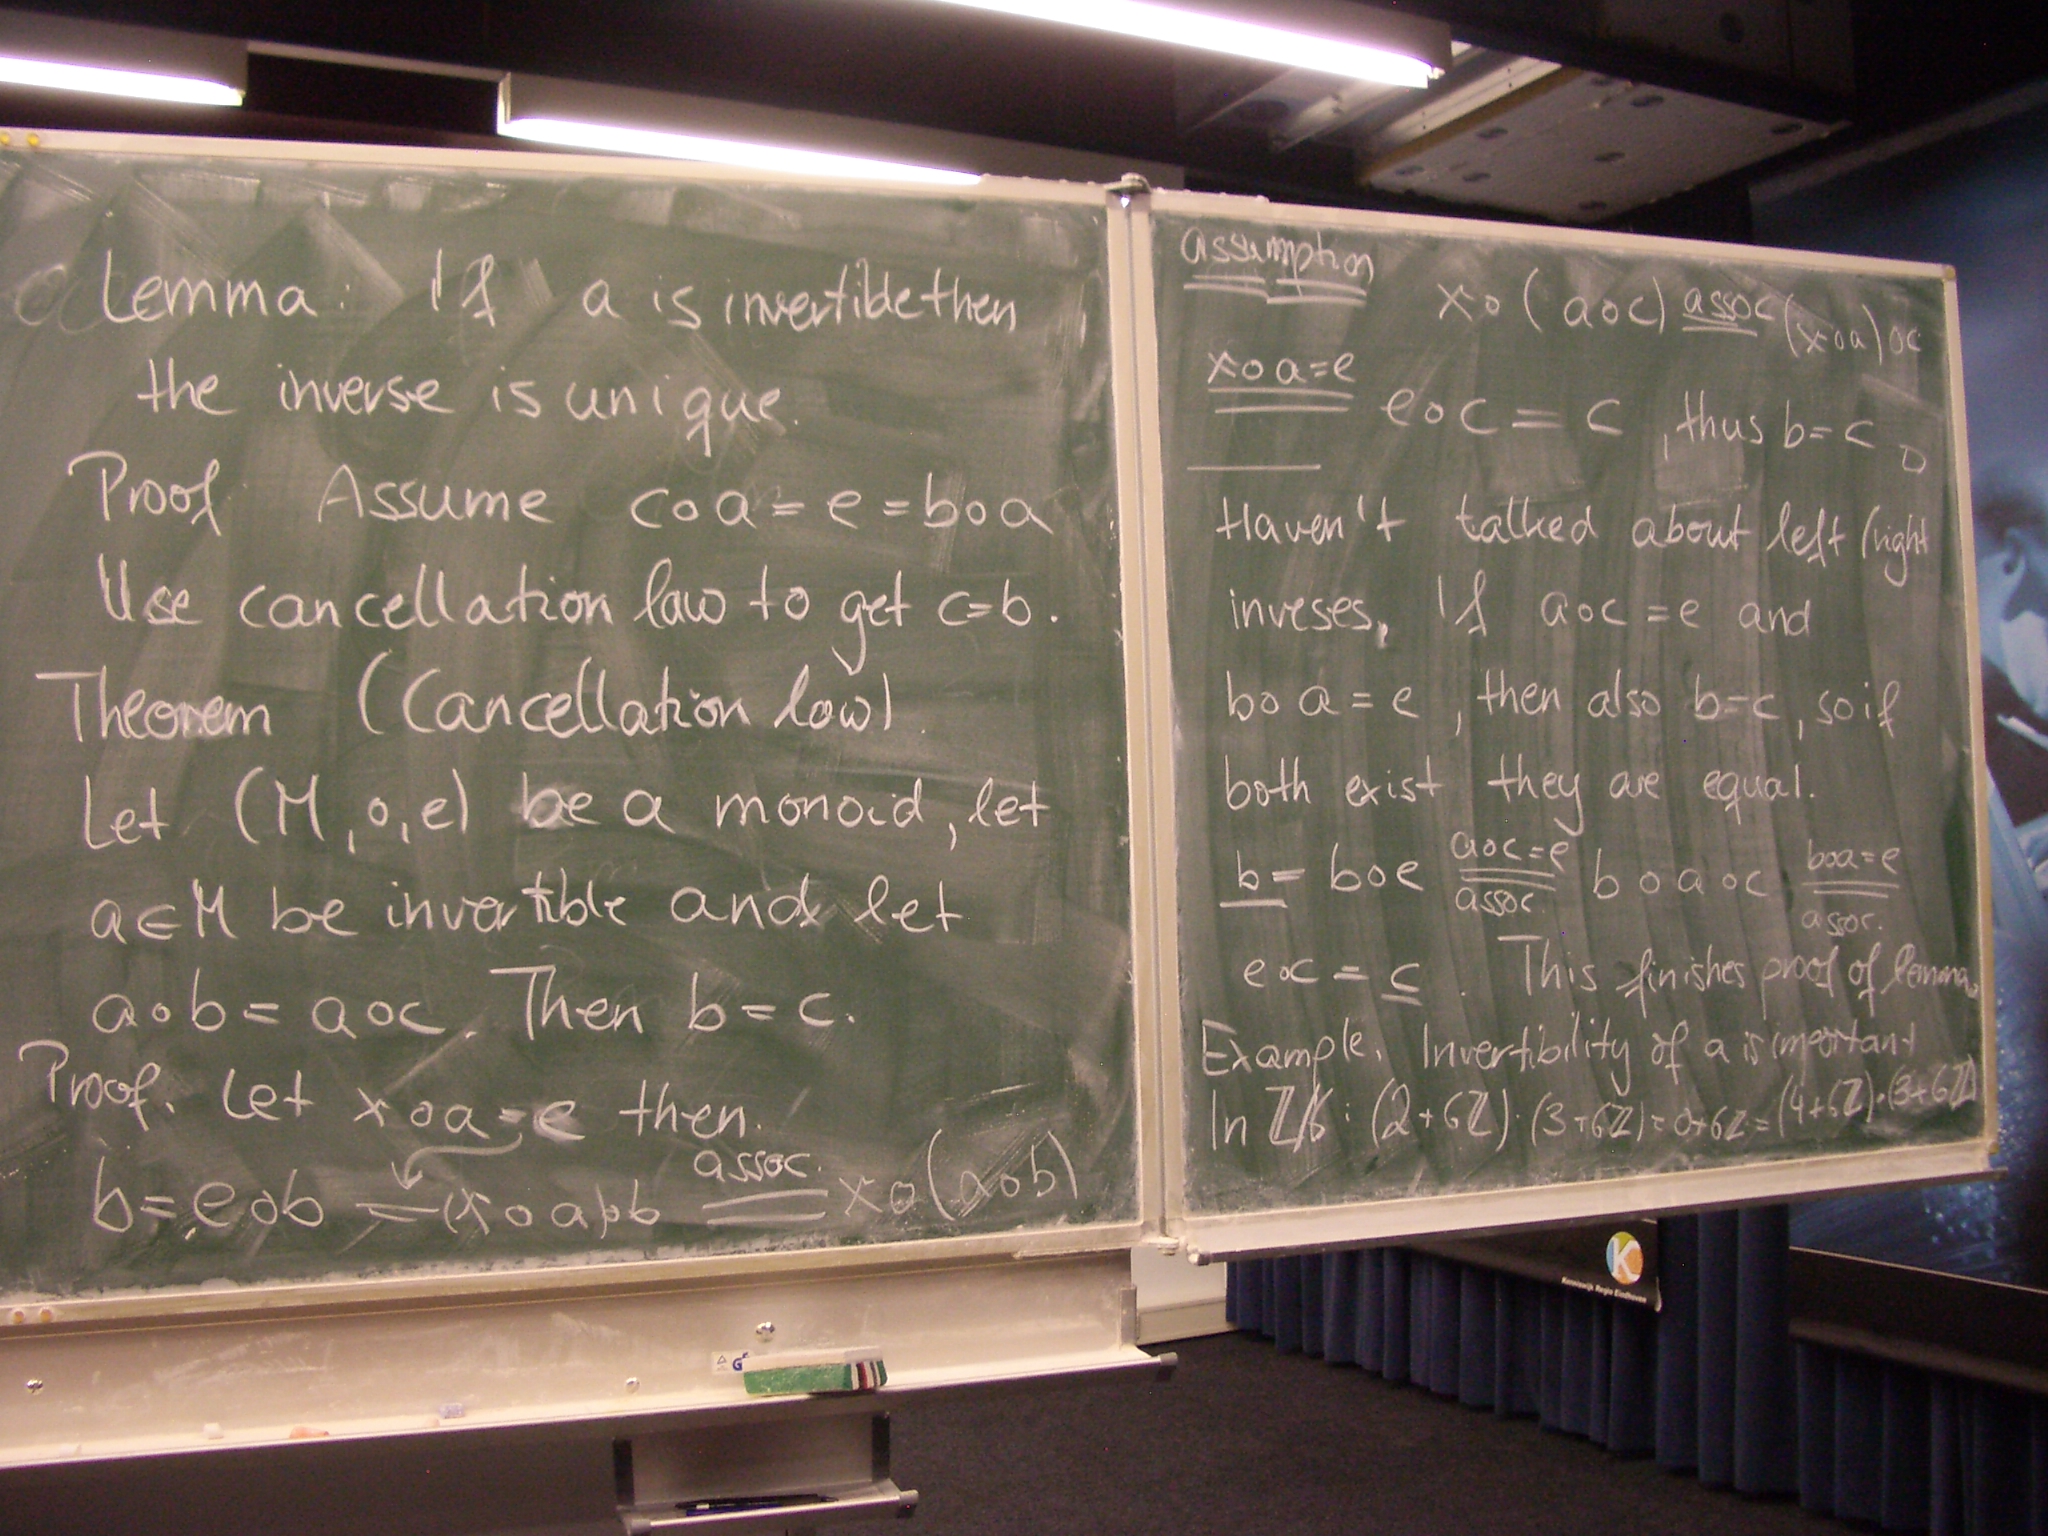 Lemma: If a is invertible then
the inverse is unique.
Proof Assume c∘a = e = b∘a
Use cancellation law to get c=b.
Theorem (Cancellation law).
Let (M,∘,e) be a monoid, let
a∈M be invertible and let
a∘b = a∘c. Then b = c.
Proof. Let x∘a = e then.
assoc.
b = e∘b = (x∘a)∘b = x∘(a∘b)
assumption
x∘(a∘c) assoc (x∘a)∘c
x∘a=e
e∘c = c, thus b=c □
Haven't talked about left/right
inveses. If a∘c = e and
b∘a = e, then also b=c, so if
both exist they are equal.
a∘c=e b∘a=e
b = b∘e = b∘a∘c =
assoc. assoc.
e∘c = c. This finishes proof of lemma.
Example. Invertibility of a is important
In ℤ/6: (2+6ℤ)·(3+6ℤ) = 0+6ℤ = (4+6ℤ)·(3+6ℤ)
K
Kennisrijk Regio Eindhoven